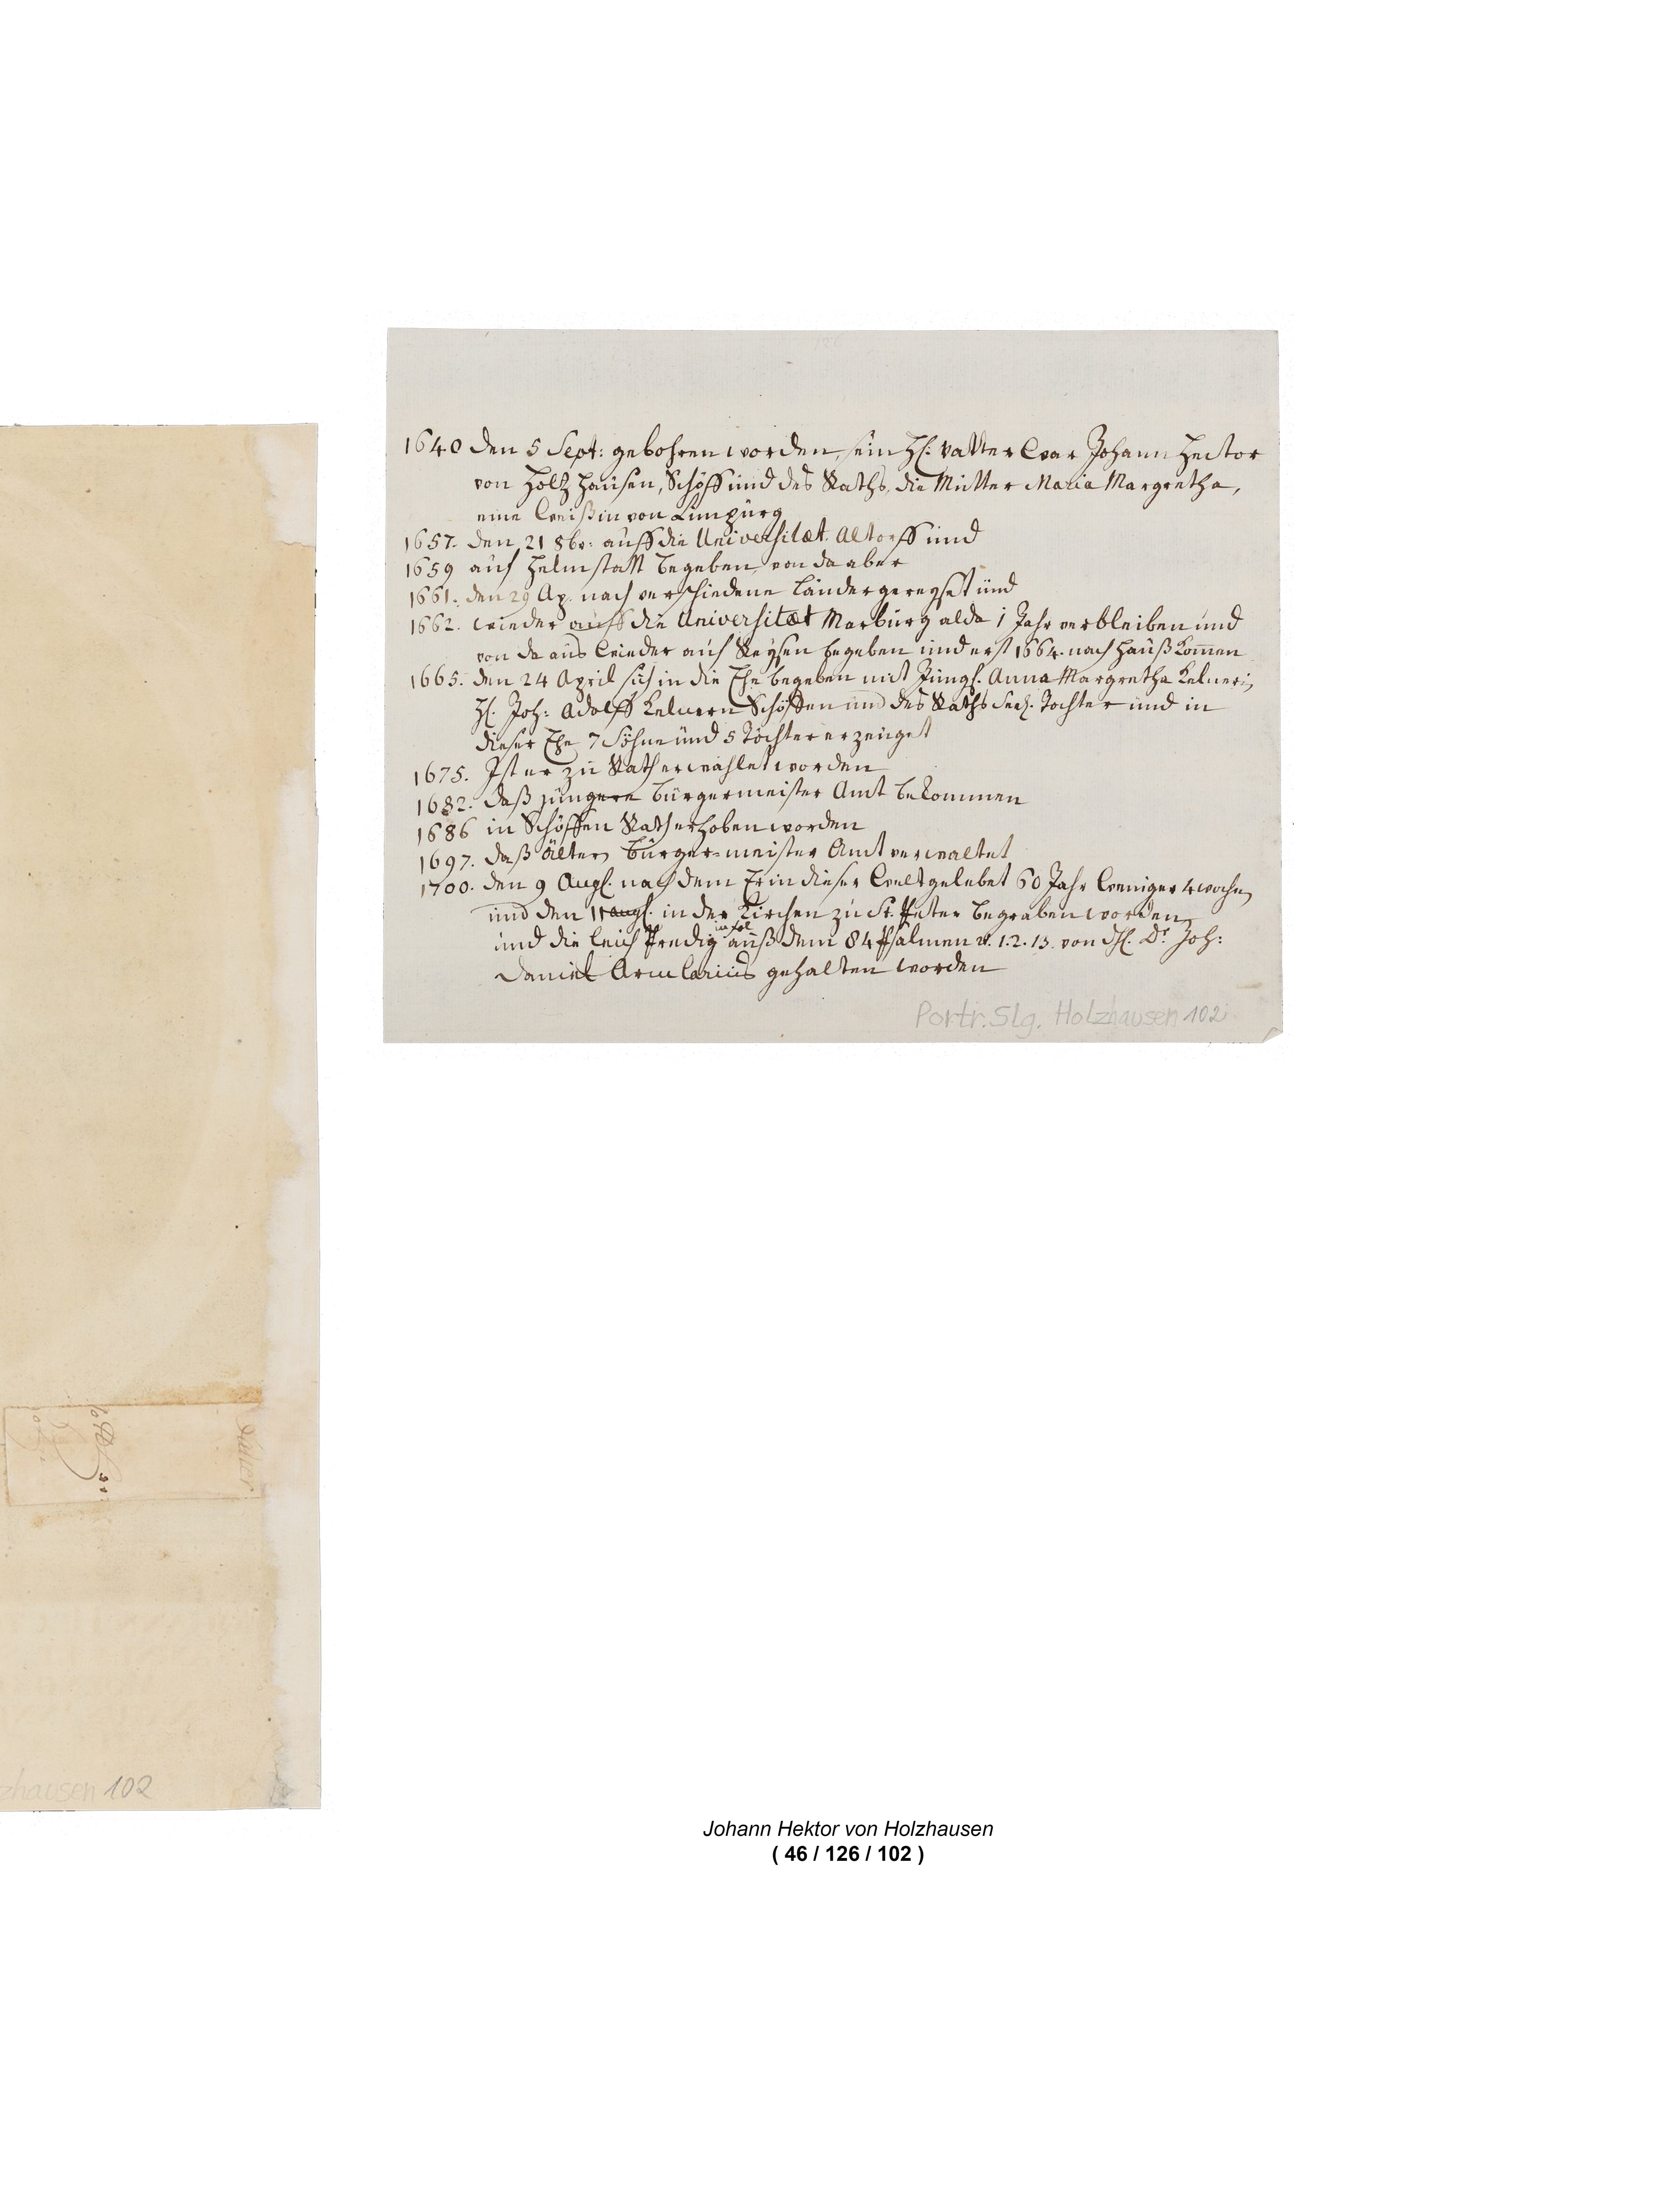 1640 den 5 Sept: gebohren worden, sein H. Vatter war Johann Hector
von Holtzhausen, Schöff und des Raths, die Mutter Maria Margretha,
eine Weißin von Limpurg
1657. den 21 8br: auff die Universitæt Altorff und
1659 auf Helmstatt begeben, von da aber
1661. den 29 Ap. nach verschiedene Länder gereyset und
1662. wieder auff die Universitæt Marburg alda 1 Jahr verbleiben und
von da aus wieder auf Reysen begeben und erst 1664. nach Hauß kom̄en
1665. den 24 April sich in die Ehe begeben mit Jungf. Anna Margretha Kelnerin
H. Joh: Adolff Kelnern Schöffen und des Raths seel. Tochter und in
dieser Ehe 7 Söhne und 5 Töchter erzeuget
1675. Ist er zu Rath erwählet worden
1682. daß jüngere Bürgermeister Amt bekommen
1686 in Schöffen Rath erhoben worden
1697. daß älter Bürgermeister Amt verwaltet
1700. den 9 Aug. nach dem Er in dieser Welt gelebet 60 Jahr weniger 4 wochen
und den 11 aug. in der Kirchen zu St. Peter begraben worden
in fol
und die leich Predig auß dem 84 Psalmen v. 1. 2. 13. von H. Dr Joh:
Daniel Arcularius gehalten worden
Portr. Slg. Holzhausen 102
zhausen 102
Johann Hektor von Holzhausen
( 46 / 126 / 102 )